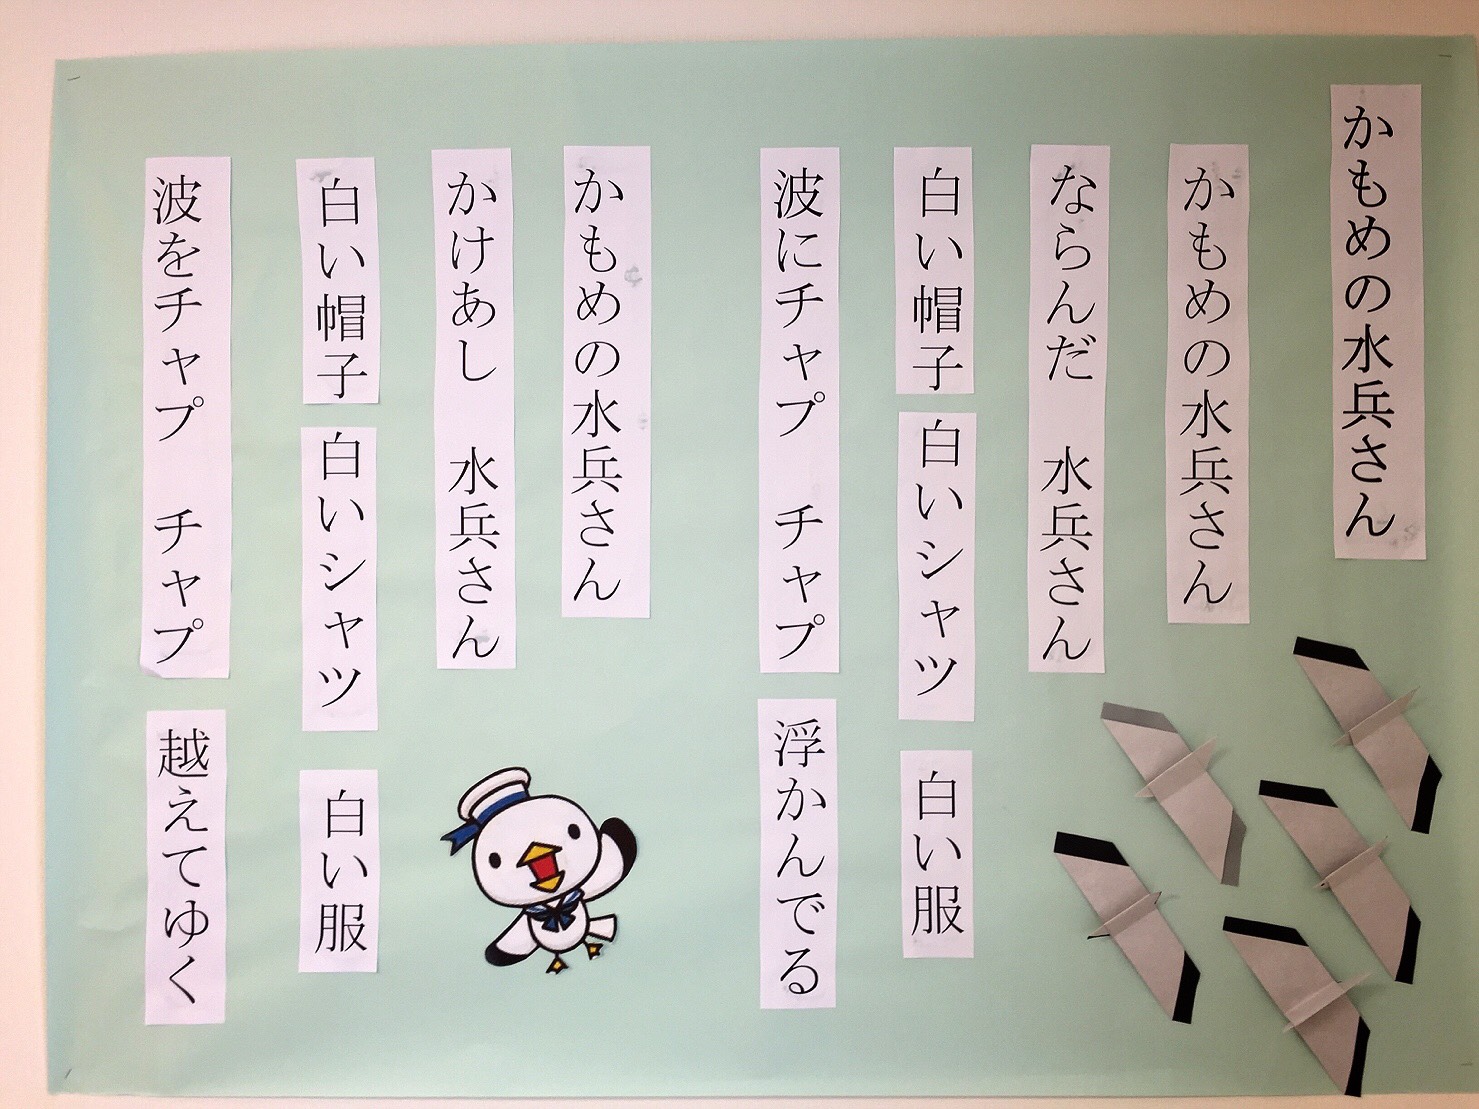 かもめの水兵さん
かもめの水兵さん
ならんだ　水兵さん
白い帽子　白いシャツ　白い服
波にチャプ　チャプ　浮かんでる
かもめの水兵さん
かけあし　水兵さん
白い帽子　白いシャツ　白い服
波をチャプ　チャプ　越えてゆく